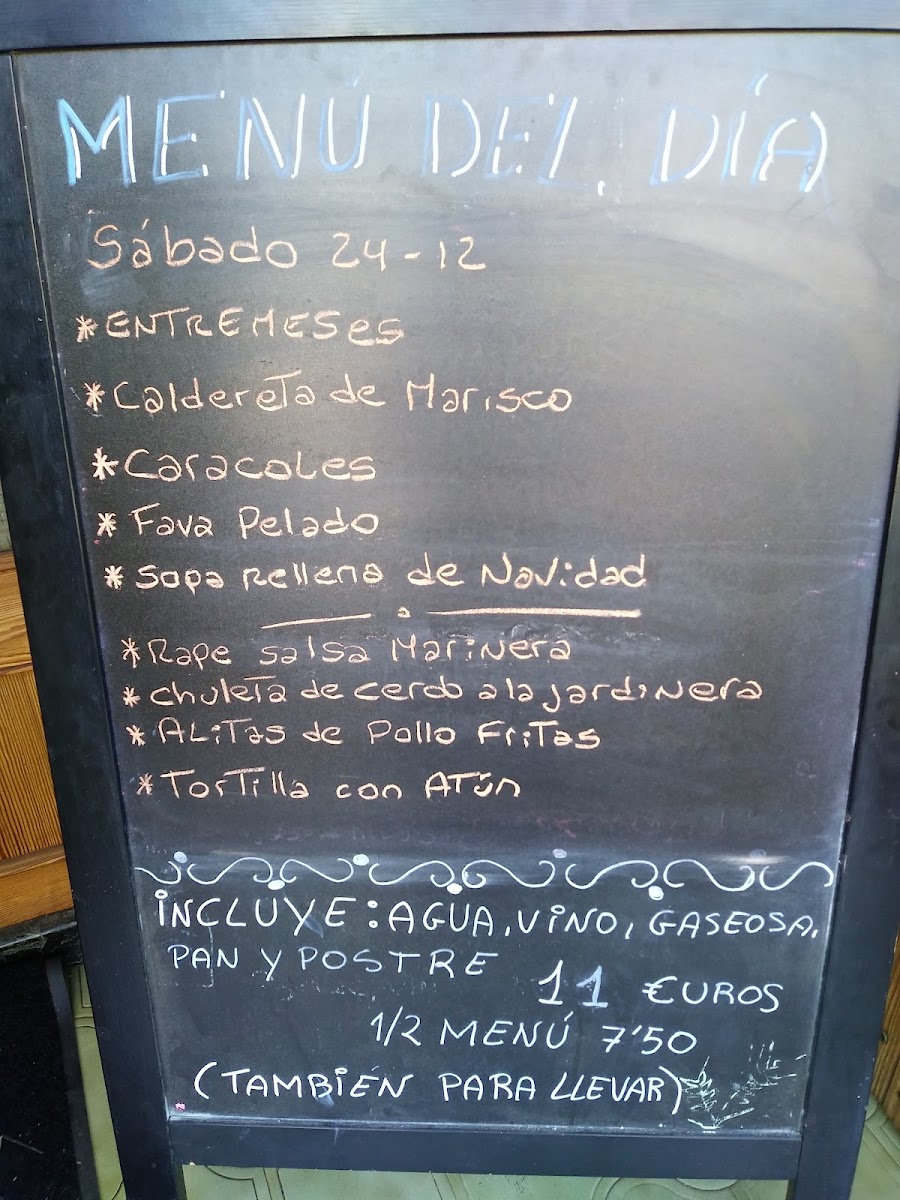 MENÚ DEL DÍA
Sábado 24-12
*ENTREMESES
*Caldereta de Marisco
*Caracoles
*Fava Pelado
*Sopa Rellena de Navidad
*Rape salsa Marinera
*chuleta de cerdo a la jardinera
*Alitas de Pollo Fritas
*Tortilla con Atún
INCLUYE: AGUA, VINO, GASEOSA,
PAN Y POSTRE
11 EUROS
1/2 MENÚ 7'50
(TAMBIÉN PARA LLEVAR)